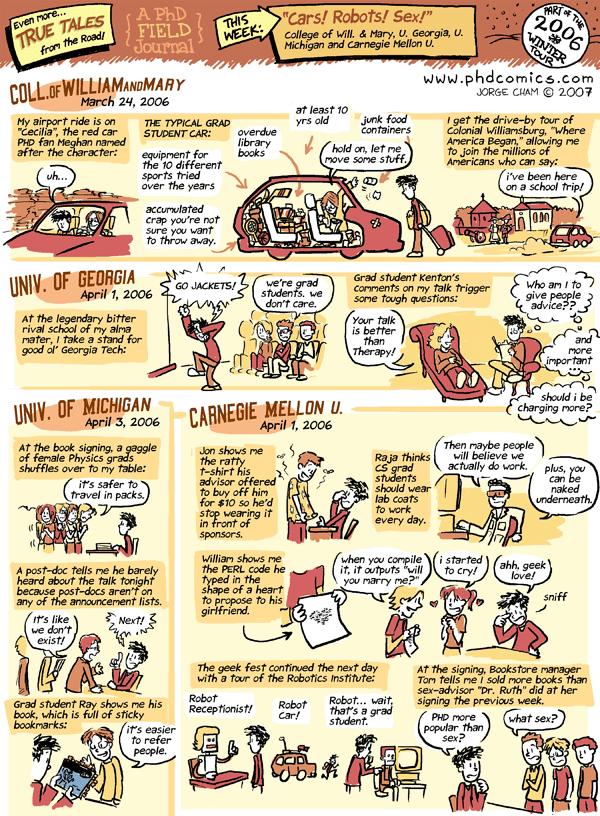 Even more...
TRUE TALES
from the Road!
A PhD
FIELD
Journal
THIS
WEEK:
"Cars! Robots! Sex!"
College of Will. & Mary, U. Georgia, U.
Michigan and Carnegie Mellon U.
PART OF THE
2006
WINTER
TOUR
www.phdcomics.com
JORGE CHAM © 2007
COLL. OF WILLIAM AND MARY
March 24, 2006
My airport ride is on
"Cecilia", the red car
PHD fan Meghan named
after the character:
uh...
THE TYPICAL GRAD
STUDENT CAR:
equipment for
the 10 different
sports tried
over the years
accumulated
crap you're not
sure you want
to throw away.
overdue
library
books
at least 10
yrs old
junk food
containers
hold on, let me
move some stuff.
I get the drive-by tour of
Colonial Williamsburg, "Where
America Began," allowing me
to join the millions of
Americans who can say:
i've been here
on a school trip!
UNIV. OF GEORGIA
April 1, 2006
At the legendary bitter
rival school of my alma
mater, I take a stand for
good ol' Georgia Tech:
GO JACKETS!
we're grad
students. we
don't care.
Grad student Kenton's
comments on my talk trigger
some tough questions:
Your talk
is better
than
Therapy!
Who am I to
give people
advice??
and
more
important
should i be
charging more?
UNIV. OF MICHIGAN
April 3, 2006
At the book signing, a gaggle
of female Physics grads
shuffles over to my table:
it's safer to
travel in packs.
A post-doc tells me he barely
heard about the talk tonight
because post-docs aren't on
any of the announcement lists.
It's like
we don't
exist!
Next!
Grad student Ray shows me his
book, which is full of sticky
bookmarks:
it's easier
to refer
people.
CARNEGIE MELLON U.
April 1, 2006
Jon shows me
the ratty
t-shirt his
advisor offered
to buy off him
for $10 so he'd
stop wearing it
in front of
sponsors.
Raja thinks
CS grad
students
should wear
lab coats
to work
every day.
Then maybe people
will believe we
actually do work.
plus, you
can be
naked
underneath.
William shows me
the PERL code he
typed in the
shape of a heart
to propose to his
girlfriend.
when you compile
it, it outputs "will
you marry me?"
i started
to cry!
ahh, geek
love!
sniff
The geek fest continued the next day
with a tour of the Robotics Institute:
Robot
Receptionist!
Robot
Car!
Robot... wait,
that's a grad
student.
At the signing, Bookstore manager
Tom tells me I sold more books than
sex-advisor "Dr. Ruth" did at her
signing the previous week.
PHD more
popular than
sex?
what sex?